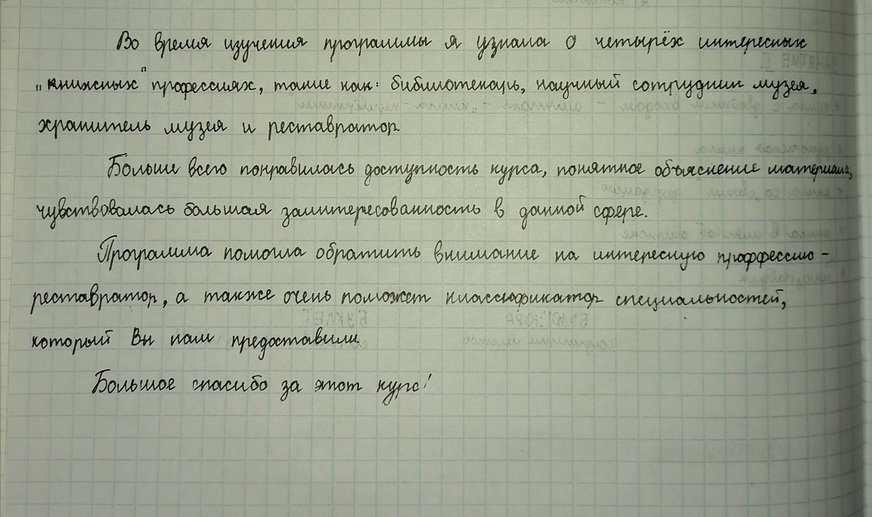 Во время изучения программы я узнала о четырёх интересных
"книжных" профессиях, такие как: библиотекарь, научный сотрудник музея,
хранитель музея и реставратор.
Больше всего понравилась доступность курса, понятное объяснение материала,
чувствовалась большая заинтересованность в данной сфере.
Программа помогла обратить внимание на интересную проффессию -
реставратор, а также очень поможет классификатор специальностей,
который Вы нам предоставили.
Большое спасибо за этот курс!
БУКЛЕТ